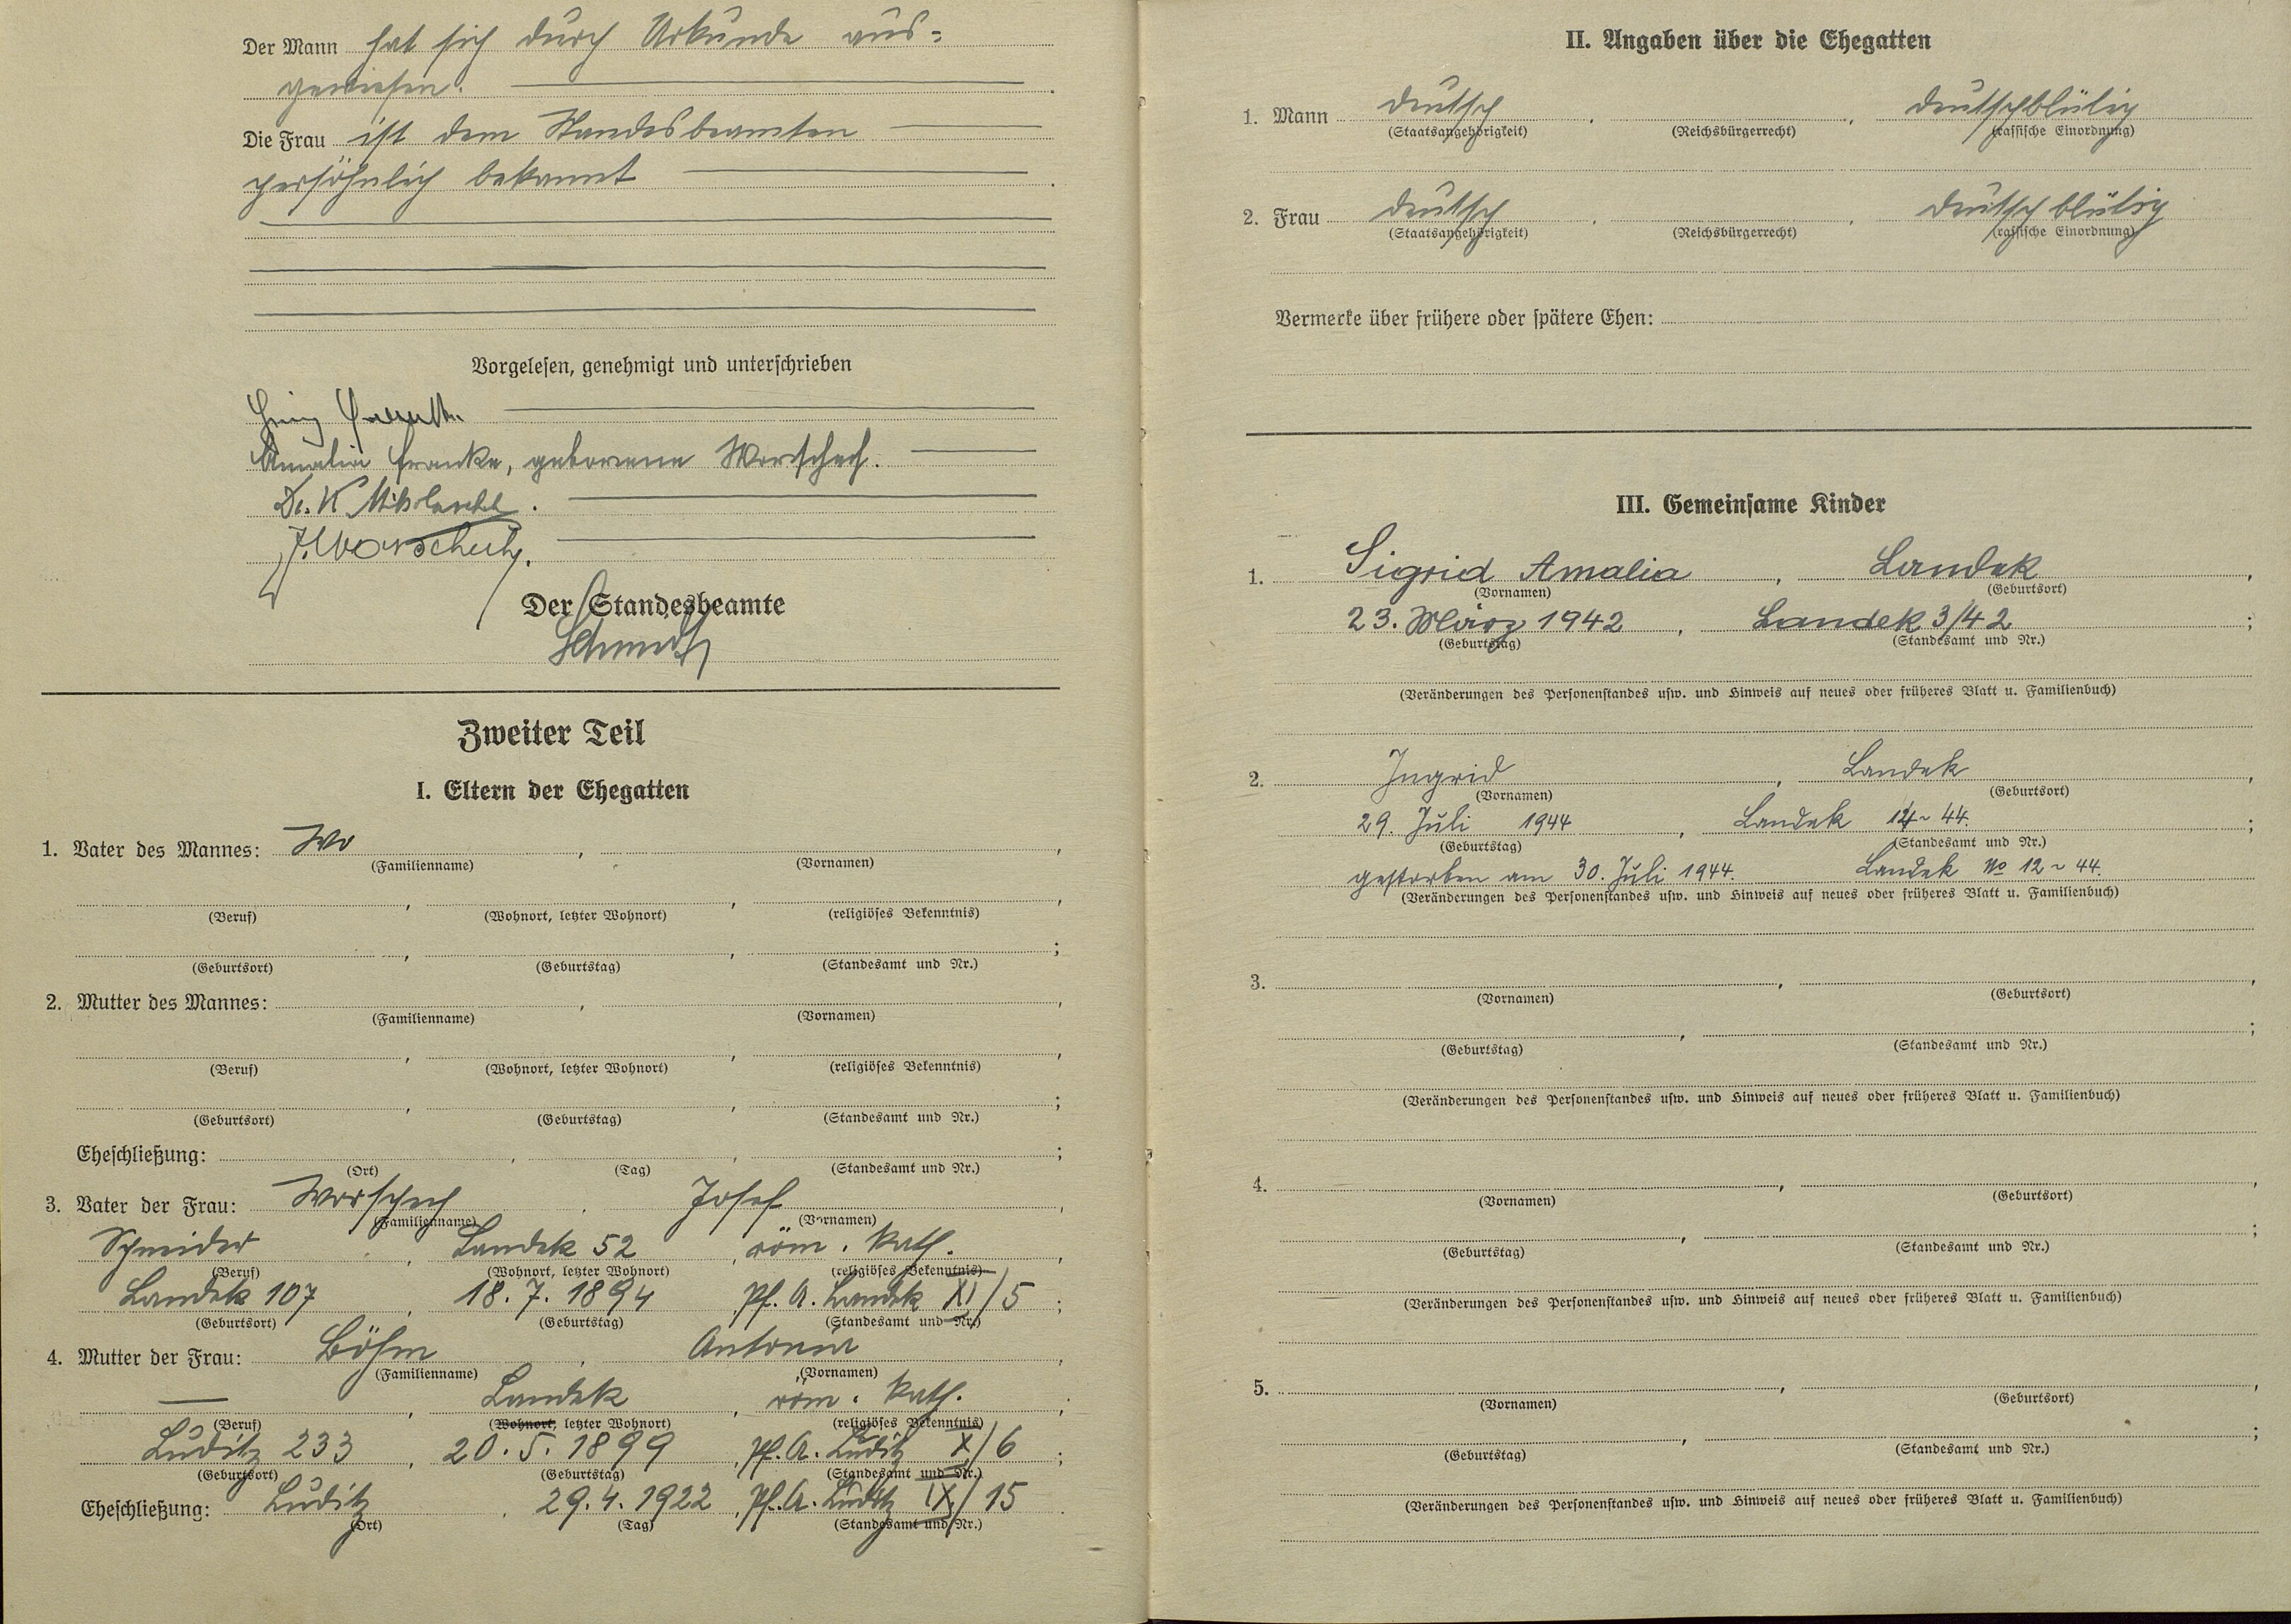 Der Mann hat sich durch Urkunde aus=
gewiesen.
Die Frau ist dem Standesbeamten
persöhnlich bekannt
Vorgelesen, genehmigt und unterschrieben
Amalia Franke, geborene Worschech.
Dr. K
J. Worschech.
Der Standesbeamte
Zweiter Teil
I. Eltern der Ehegatten
1. Vater des Mannes: Wo
(Familienname) (Vornamen)
(Beruf) (Wohnort, letzter Wohnort) (religiöses Bekenntnis)
(Geburtsort) (Geburtstag) (Standesamt und Nr.)
2. Mutter des Mannes:
(Familienname) (Vornamen)
(Beruf) (Wohnort, letzter Wohnort) (religiöses Bekenntnis)
(Geburtsort) (Geburtstag) (Standesamt und Nr.)
Eheschließung:
(Ort) (Tag) (Standesamt und Nr.)
3. Vater der Frau: Worschech Josef
(Familienname) (Vornamen)
Schneider, Landek 52, röm. kath.
(Beruf) (Wohnort, letzter Wohnort) (religiöses Bekenntnis)
Landek 107, 18.7.1894 Pf. A. Landek XI/5;
(Geburtsort) (Geburtstag) (Standesamt und Nr.)
4. Mutter der Frau: Böhm, Antonia
(Familienname) (Vornamen)
—, Landek, röm. kath.
(Beruf) (Wohnort, letzter Wohnort) (religiöses Bekenntnis)
Luditz 233, 20.5.1899, Pf. A. Luditz X/6;
(Geburtsort) (Geburtstag) (Standesamt und Nr.)
Eheschließung: Luditz, 29.4.1922, Pf. A. Luditz IX/15
(Ort) (Tag) (Standesamt und Nr.)
II. Angaben über die Ehegatten
1. Mann deutsch, deutschblütig
(Staatsangehörigkeit) (Reichsbürgerrecht) (rassische Einordnung)
2. Frau deutsch, deutschblütig
(Staatsangehörigkeit) (Reichsbürgerrecht) (rassische Einordnung)
Vermerke über frühere oder spätere Ehen:
III. Gemeinsame Kinder
1. Sigrid Amalia, Landek,
(Vornamen) (Geburtsort)
23. März 1942, Landek 3/42;
(Geburtstag) (Standesamt und Nr.)
(Veränderungen des Personenstandes usw. und Hinweis auf neues oder früheres Blatt u. Familienbuch)
2. Ingrid, Landek,
(Vornamen) (Geburtsort)
29. Juli 1944, Landek 14~44.;
(Geburtstag) (Standesamt und Nr.)
gestorben am 30. Juli 1944. Landek No 12~44.
(Veränderungen des Personenstandes usw. und Hinweis auf neues oder früheres Blatt u. Familienbuch)
3.
(Vornamen) (Geburtsort)
(Geburtstag) (Standesamt und Nr.)
(Veränderungen des Personenstandes usw. und Hinweis auf neues oder früheres Blatt u. Familienbuch)
4.
(Vornamen) (Geburtsort)
(Geburtstag) (Standesamt und Nr.)
(Veränderungen des Personenstandes usw. und Hinweis auf neues oder früheres Blatt u. Familienbuch)
5.
(Vornamen) (Geburtsort)
(Geburtstag) (Standesamt und Nr.)
(Veränderungen des Personenstandes usw. und Hinweis auf neues oder früheres Blatt u. Familienbuch)